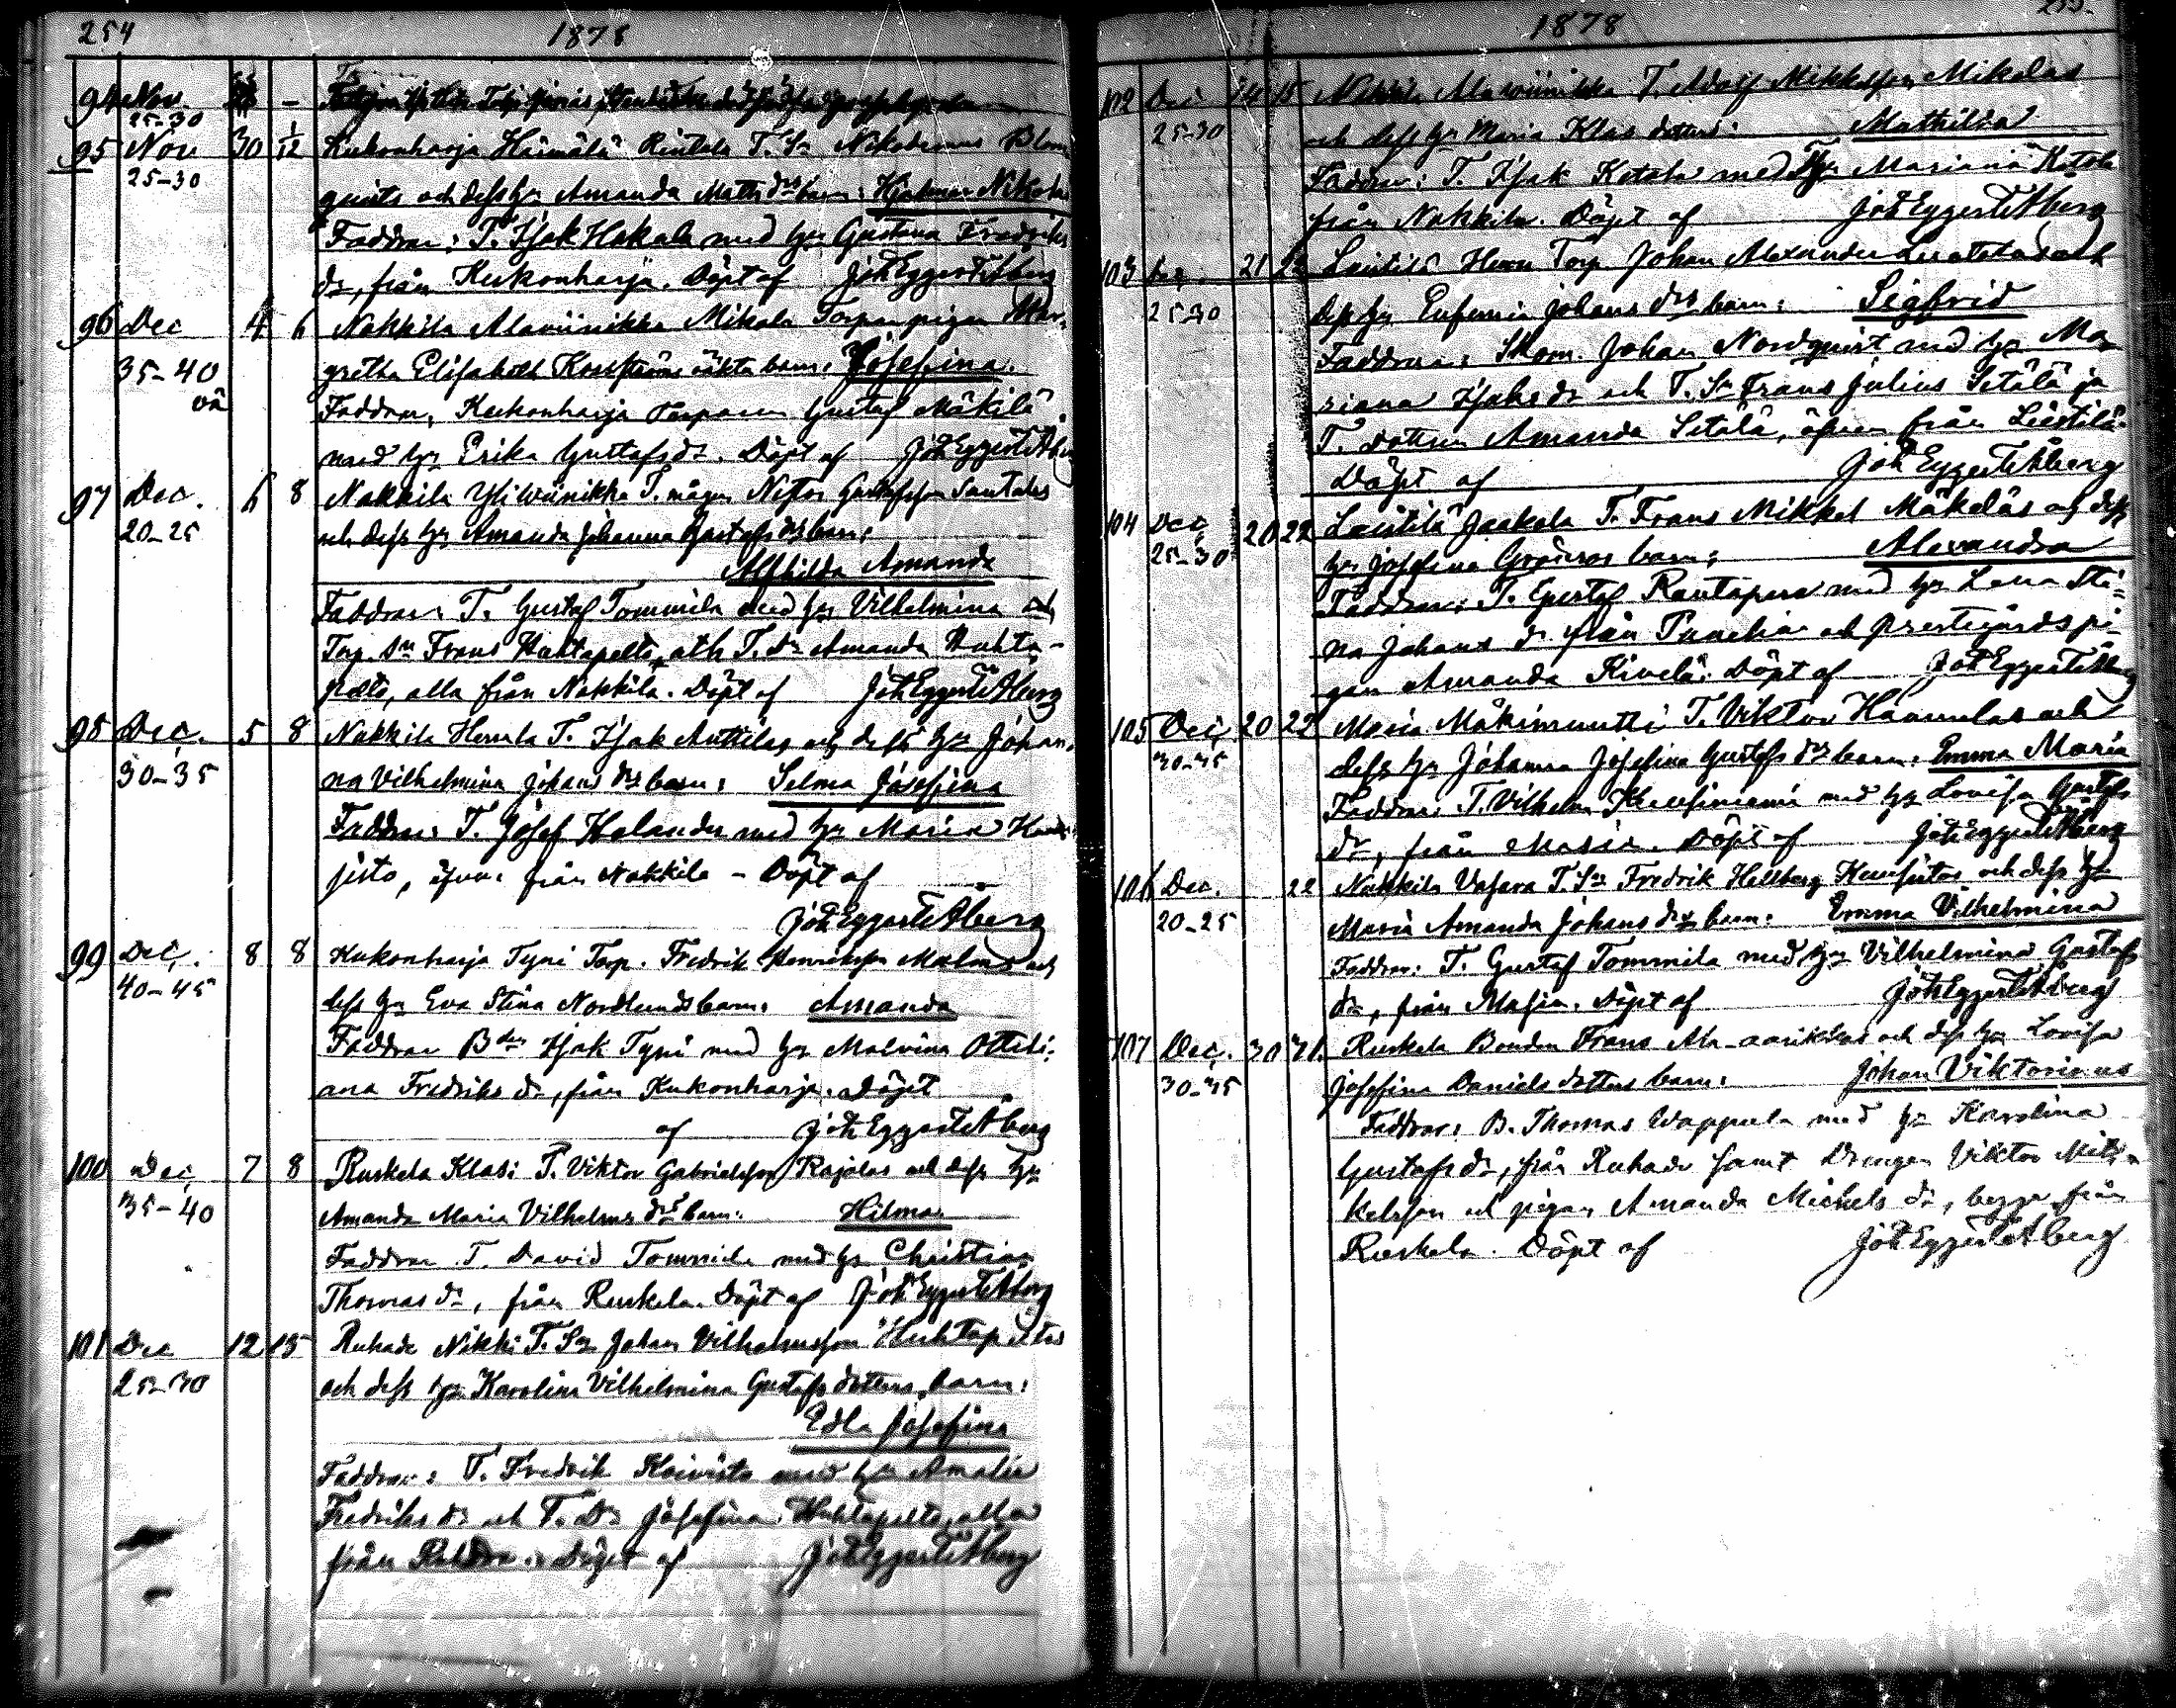 254
1878
94 Nov.
25-30
95 Nov 30 1/12 Kukonharja Heimälä Rintala T. Sn Nikodemus Blom
25-30
quists och dess hu Amanda Matts drs barn: Hjalmar Nikola
Faddrar: T. Isak Hakala med hu Gustava Fredriks
dr, från Kukonharja. Döpt af Joh Eggert Åberg
96 Dec 4 6 Nakkila Alaviinikka Mikola Torpare pigan Mar-
35-40 gretha Elisabeth oäkta barn: Josefina.
oä
Faddrar, Kukonharja Torparen Gustaf Mäkilä
med hu Erika Gustafs dr. Döpt af Joh Eggert Åberg
97 Dec. 6 8 Nakkila Yliwiinikka T. mågen Nestor Gustafsson Santalas
20-25 och dess hu Amanda Johanna Gustafs drs barn:
Alfhilda Amanda
Faddrar: T. Gustaf Tommila med hu Vilhelmina och
Torp. Sn Frans Huhtapelto, och T. Dr Amanda Huhta-
pelto, alla från Nakkila. Döpt af Joh Eggert Åberg
98 Dec. 5 8 Nakkila Herrala T. Isak Anttilas och dess hu Johan-
30-35 na Vilhelmina Johans drs barn: Selma Josefina
Faddrar: T. Josef Helander med hu Maria
jisto, från Nakkila - Döpt af
Joh Eggert Åberg
99 Dec. 8 8 Kukonharja Tyni Torp. Fredrik Henriksson Malms och
40-45 dess hu Eva Stina Nordlunds barn: Amanda
Faddrar Bden Isak Tyni med hu Malvina Ottili-
ana Fredriks dr, från Kukonharja. Döpt
af Joh Eggert Åberg
100 Dec. 7 8 Ruskela Klasi T. Viktor Gabrielsson Rajalas och dess hu
35-40 Amanda Maria Vilhelms drs barn: Hilma
Faddrar T. David Tommila med hu Christina
Thomas dr, från Ruskela. Döpt af Joh Eggert Åberg
101 Dec 12 15 Ruhade Nikki T. Sn Johan Vilhelmsson Huhtapeltos
25-30 och dess hu Karolina Vilhelmina Gustafs dotters barn:
Edla Josefina
Faddrar: T. Fredrik Koivisto med hu Amalia
Fredriks dr och T. Dr Josefina Huhtapelto, alla
från Ruhade. Döpt af Joh Eggert Åberg
1878
255.
102 Dec 14 15 Nakkila Alawiinikka T. Adolf Mikkelsson Mikolas
25-30 och dess hu Maria Klas dotters: Mathilda
Faddrar: T. Isak Ketola med hu Mariana Ketola
från Nakkila. Döpt af Joh Eggert Åberg
103 Dec. 21 22 Leistilä Herra Torp. Johan Alexander och
25-30 dess hu Eufemia Johans drs barn: Sigfrid
Faddrar: Skom. Johan Nordqvist med hu Ma-
riana Isaks dr och T. Sn Frans Julius Setälä ja
T. dottren Amanda Setälä, från Leistilä
Döpt af Joh Eggert Åberg
104 Dec. 20 22 Leistilä Jaakola T. Frans Mikkel Mäkeläs och dess
25-30 hu Josefina Grönroos barn: Alexandra
Faddrar: T. Gustaf Rantapere med hu Lena Sti-
na Johans dr från och prestegårdspi-
gan Amanda Kivelä. Döpt af Joh Eggert Åberg
105 Dec. 20 22 Masia Mäkimuutti T. Viktor och
dess hu Johanna Josefina Gustafs drs barn: Emma Maria
Faddrar: T. Vilhelm med hu Lovisa Gustafs
dr, från Masia. Döpt af Joh Eggert Åberg
106 Dec. 22 Nakkila Vasara T. Sn Fredrik Hellberg och dess hu
20-25 Maria Amanda Johans drs barn: Emma Vilhelmina
Faddrar: T. Gustaf Tommila med hu Vilhelmina Gustafs
dr, från Masia. Döpt af Joh Eggert Åberg
107 Dec. 30 31. Ruskela Bonden Frans Ala-aarikkas och dess hu Lovisa
30-35 Josefina Daniels dotters barn: Johan Viktorianus
Faddrar: B. Thomas Wappula med hu Karolina
Gustafs dr, från Ruhade samt Drengen Viktor Mik-
kelsson och pigan Amanda Michels dr, begge från
Ruskela. Döpt af Joh Eggert Åberg